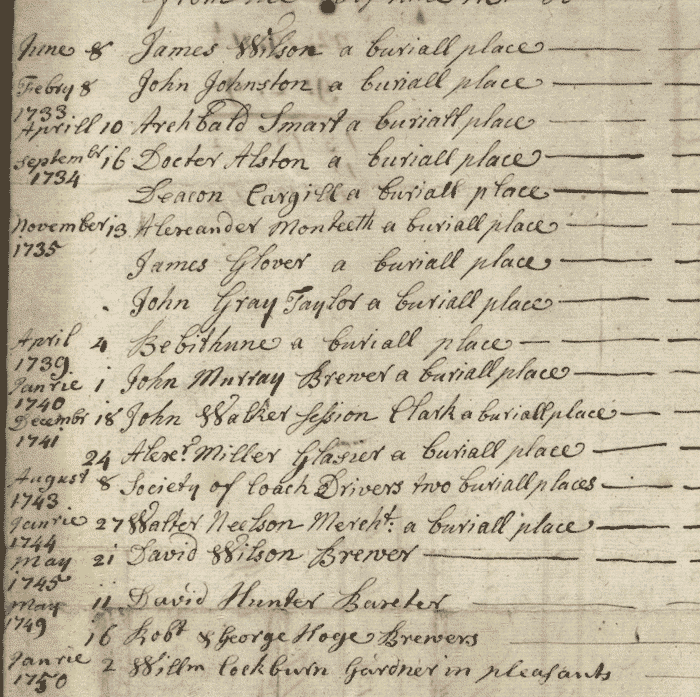 June 8 James Wilson a buriall place
Febry 8 John Johnston a buriall place
1733
Aprill 10 Archbald Smart a buriall place
Septembr 16 Docter Alston a buriall place
1734
Deacon Cargill a buriall place
November 13 Alexander Monteeth a buriall place
1735
James Glover a buriall place
John Gray Taylor a buriall place
April 4 Bebithune a buriall place
1739
Janrie 1 John Murray Brewer a buriall place
1740
Decembr 18 John Walker Session Clark a buriall place
1741
24 Alexr. Miller Glasier a buriall place
August 8 Society of Coach Drivers two buriall places
1743
Janrie 27 Walter Neelson Mercht: a buriall place
1744
May 21 David Wilson Brewer
1745
May 11 David Hunter Bareter
1749
16 Robt & George Hoge Brewers
Janrie 2 Willm Cockburn Gardner in pleasants
1750